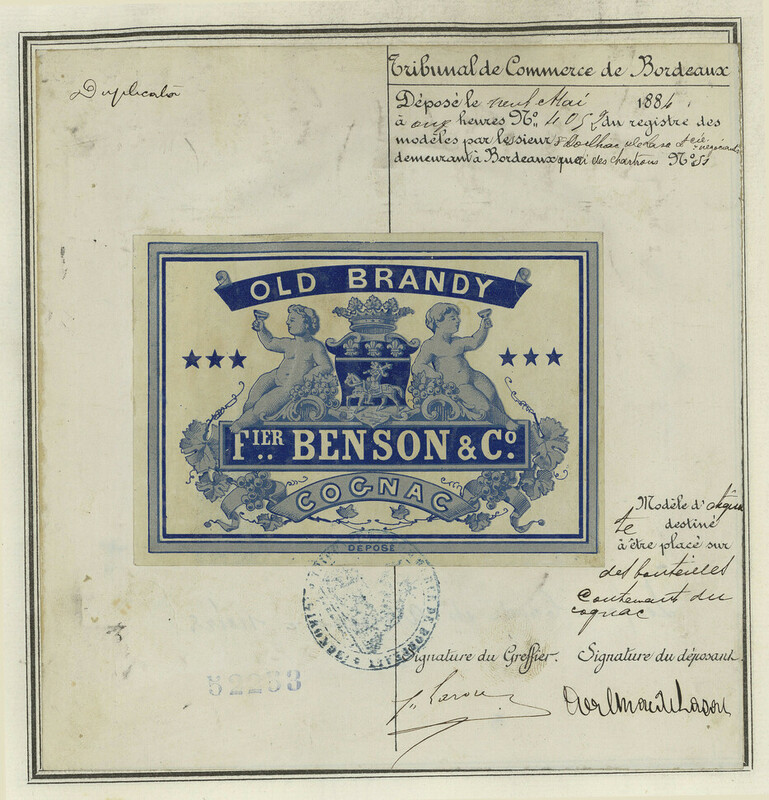 Duplicata
Tribunal de Commerce de Bordeaux
Déposé le neuf Mai 1884
à onze heures No. 4052 du registre des
modèles par le sieur
demeurant à Bordeaux quai des chartrons No. 51
OLD BRANDY
FIER BENSON & Co.
COGNAC
DÉPOSÉ
Modèle d'étiquet
te destiné
à être placé sur
des bouteilles
Contenant du
cognac
Signature du Greffier. Signature du déposant.